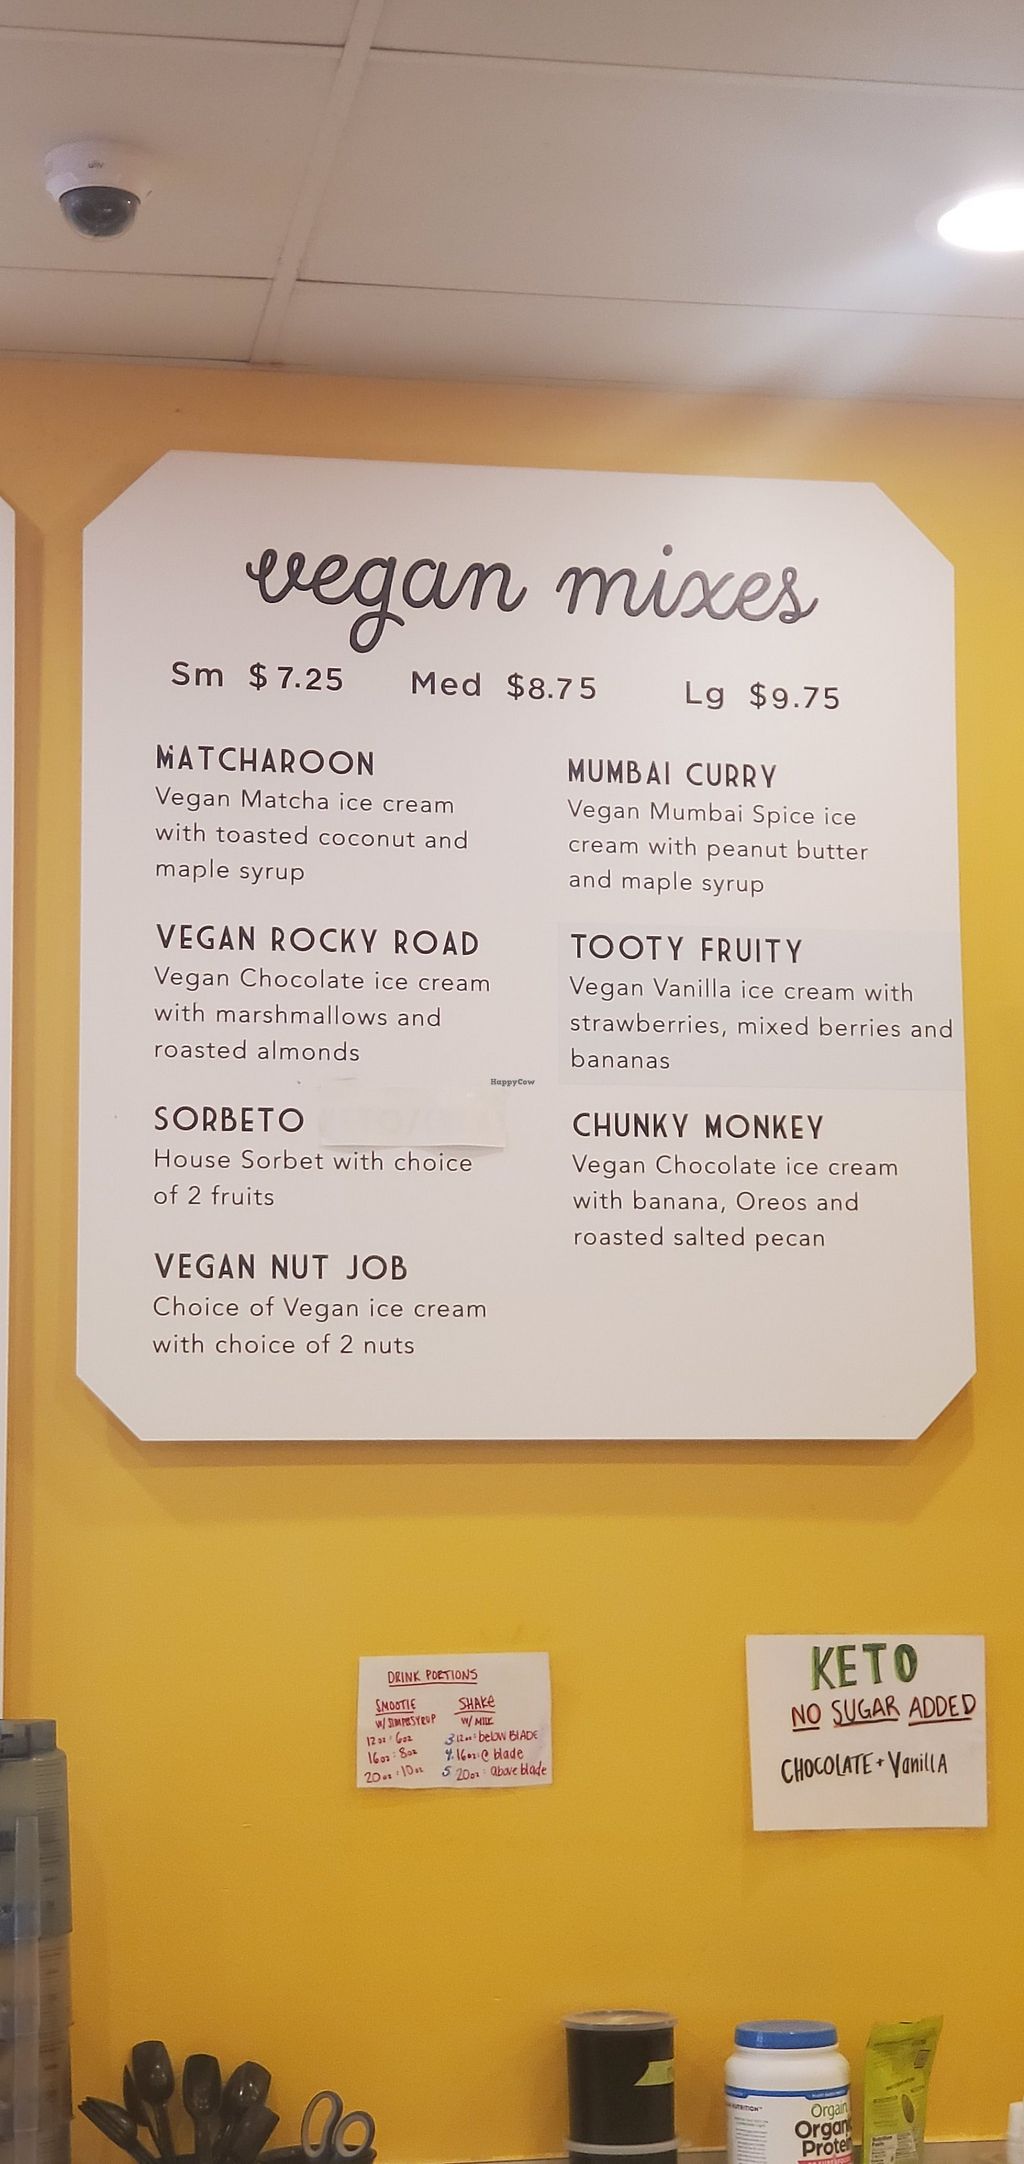 vegan mixes
Sm $7.25 Med $8.75 Lg $9.75
MATCHAROON
Vegan Matcha ice cream
with toasted coconut and
maple syrup
VEGAN ROCKY ROAD
Vegan Chocolate ice cream
with marshmallows and
roasted almonds
SORBETO
House Sorbet with choice
of 2 fruits
VEGAN NUT JOB
Choice of Vegan ice cream
with choice of 2 nuts
MUMBAI CURRY
Vegan Mumbai Spice ice
cream with peanut butter
and maple syrup
TOOTY FRUITY
Vegan Vanilla ice cream with
strawberries, mixed berries and
bananas
CHUNKY MONKEY
Vegan Chocolate ice cream
with banana, Oreos and
roasted salted pecan
HappyCow
DRINK PORTIONS
SMOOTIE
12oz : 6oz
16oz : 8oz
20oz : 10oz
SHAKE
W/ MILK
3 12oz : below BLADE
4. 16oz : @ blade
5 20oz : above blade
KETO
NO SUGAR ADDED
CHOCOLATE + VanillA
Orgain
Organ
Protei